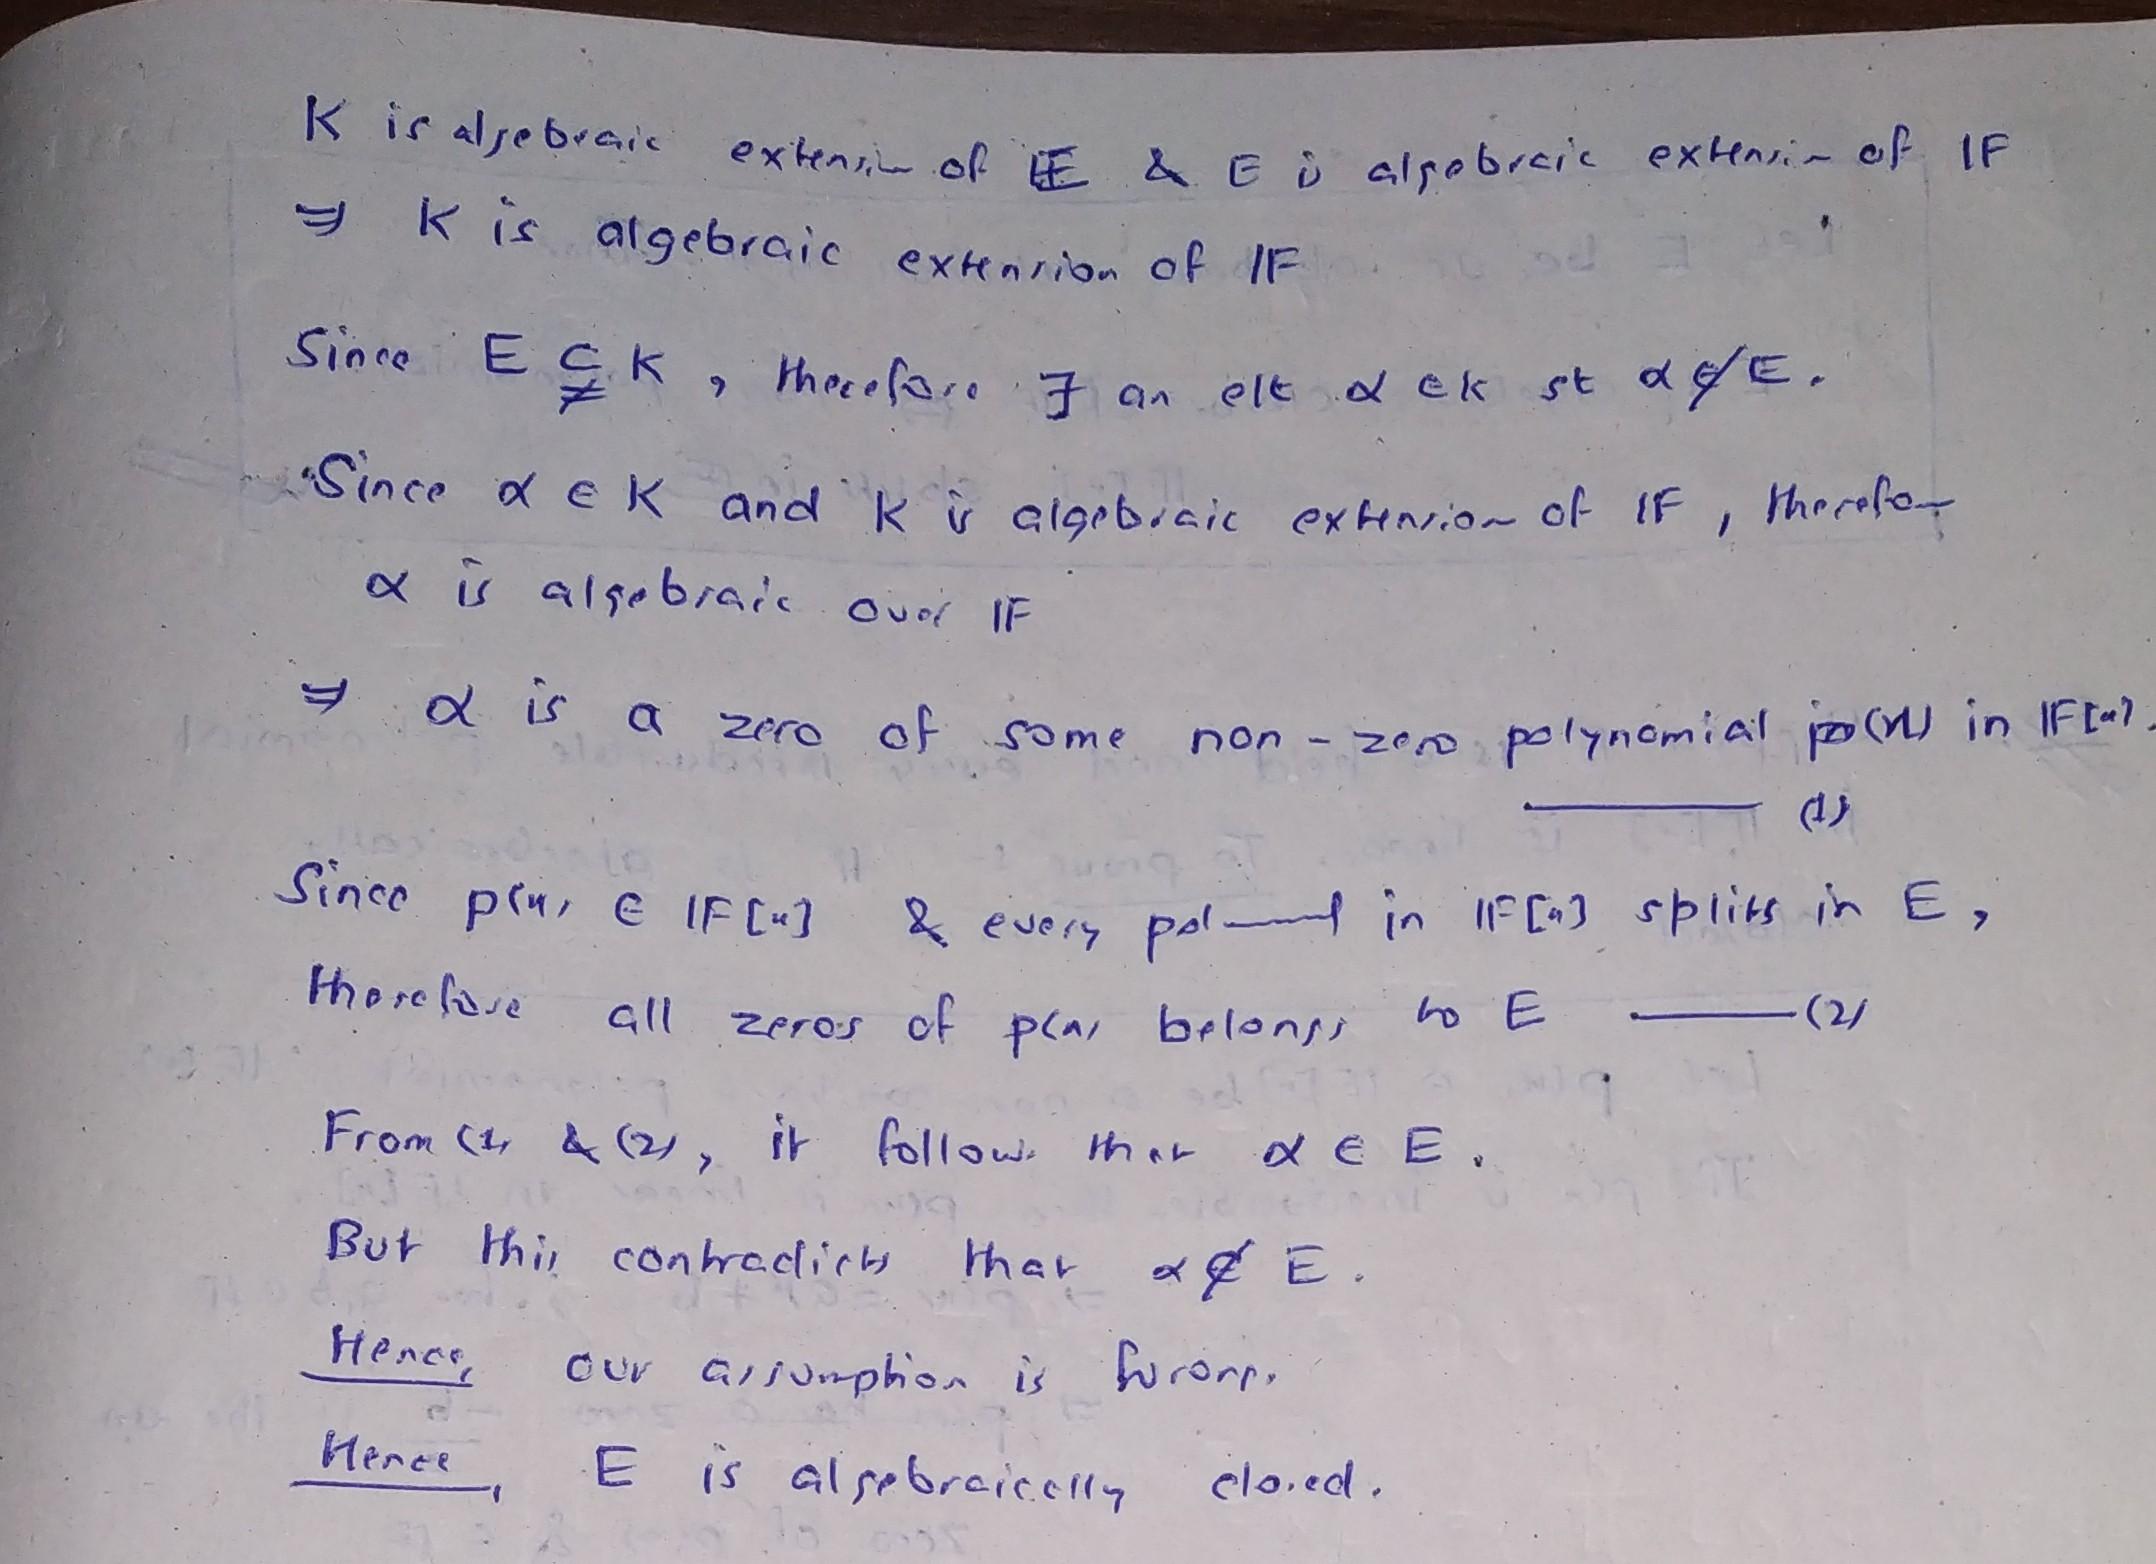 K is algebraic extension of E & E is algebraic extension of IF
⇒ K is algebraic extension of IF
Since E ⊊ K, therefore ∃ an elt α ∈ K st α ∉ E.
Since α ∈ K and K is algebraic extension of IF, therefore
α is algebraic over IF
⇒ α is a zero of some non-zero polynomial p(x) in IF[x].
——— (1)
Since p(x) ∈ IF[x] & every polynomial in IF[x] splits in E,
therefore all zeros of p(x) belongs to E ——— (2)
From (1) & (2), it follows that α ∈ E.
But this contradicts that α ∉ E.
Hence, our assumption is wrong.
Hence, E is algebraically closed.